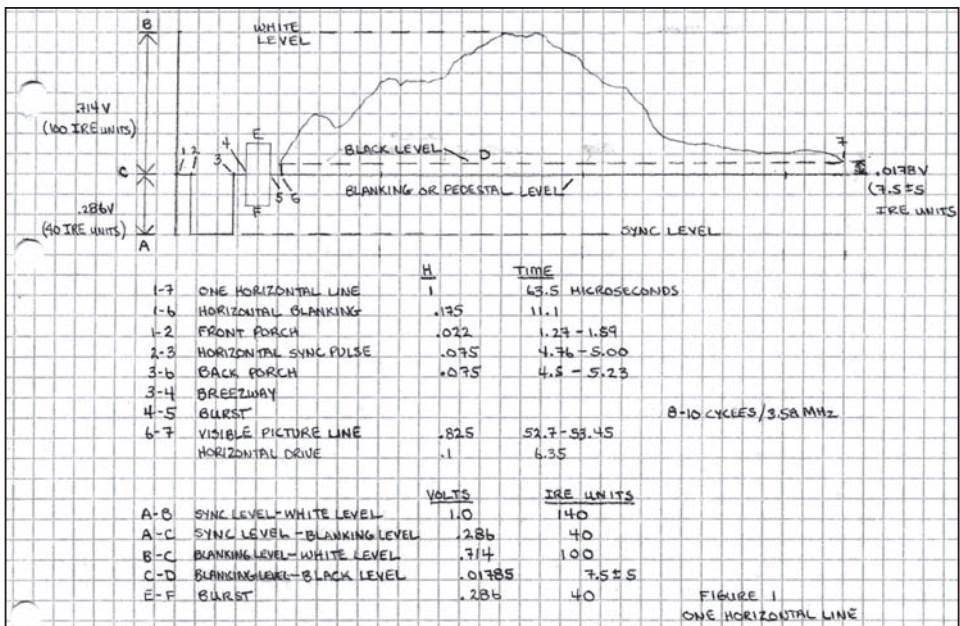 B
WHITE
LEVEL
.714V
(100 IRE UNITS)
1 2
3
4
E
BLACK LEVEL
D
7
C
BLANKING OR PEDESTAL LEVEL
5 6
.0178V
(7.5±5
IRE UNITS
.286V
(40 IRE UNITS)
F
SYNC LEVEL
A
H TIME
1-7 ONE HORIZONTAL LINE 1 63.5 MICROSECONDS
1-6 HORIZONTAL BLANKING .175 11.1
1-2 FRONT PORCH .022 1.27-1.59
2-3 HORIZONTAL SYNC PULSE .075 4.76-5.00
3-6 BACK PORCH .075 4.5-5.23
3-4 BREEZWAY
4-5 BURST 8-10 CYCLES/3.58 MHz
6-7 VISIBLE PICTURE LINE .825 52.7-53.45
HORIZONTAL DRIVE .1 6.35
VOLTS IRE UNITS
A-B SYNC LEVEL-WHITE LEVEL 1.0 140
A-C SYNC LEVEL-BLANKING LEVEL .286 40
B-C BLANKING LEVEL-WHITE LEVEL .714 100
C-D BLANKING LEVEL-BLACK LEVEL .01785 7.5±5
E-F BURST .286 40
FIGURE 1
ONE HORIZONTAL LINE